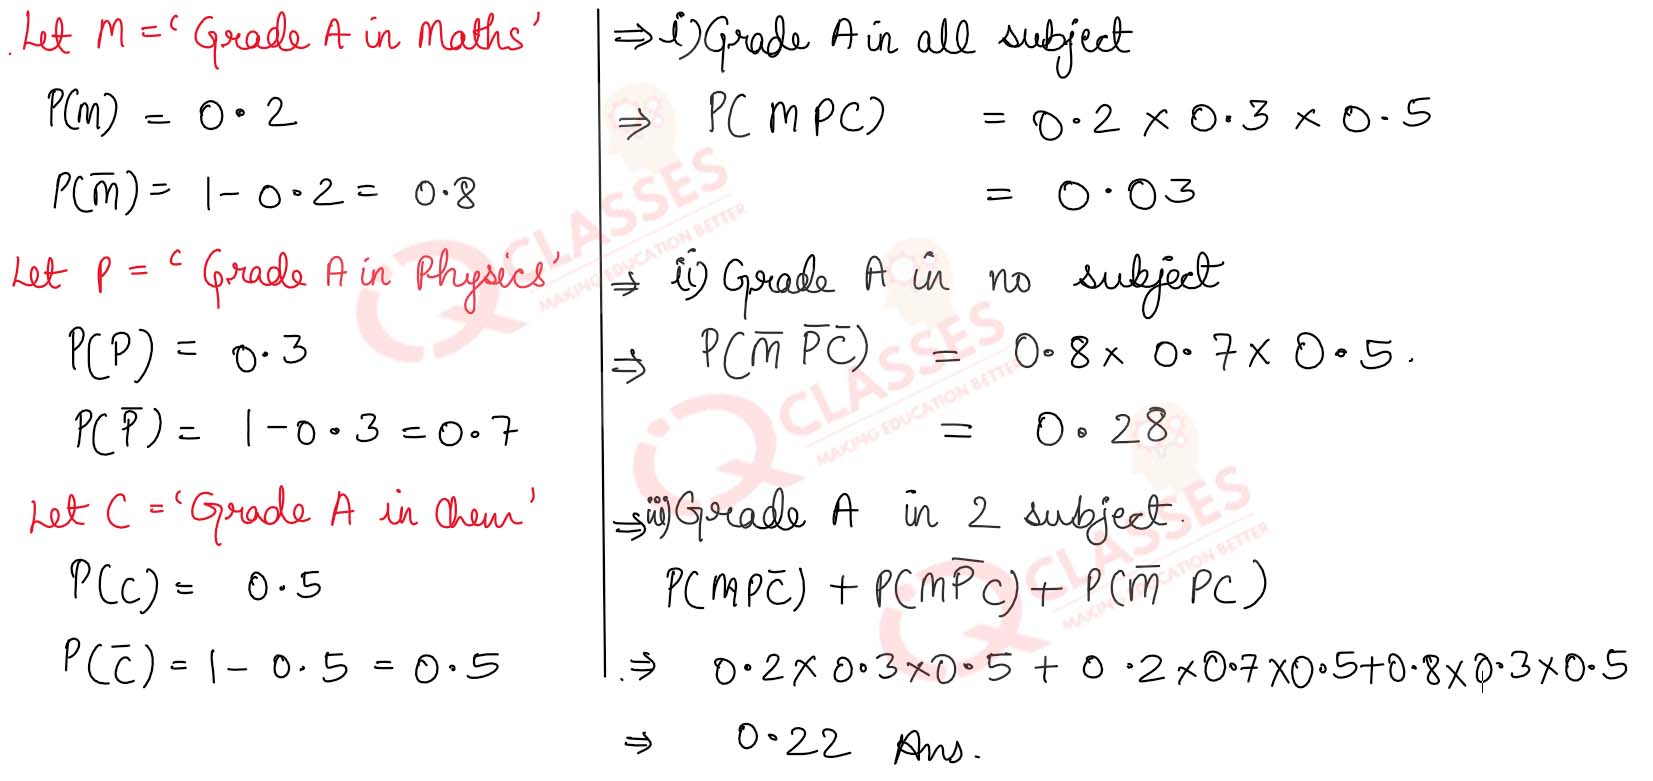 Let M = ‘Grade A in Maths’
P(M) = 0.2
P(M̅) = 1 - 0.2 = 0.8
Let P = ‘Grade A in Physics’
P(P) = 0.3
P(P̅) = 1 - 0.3 = 0.7
Let C = ‘Grade A in Chem’
P(C) = 0.5
P(C̅) = 1 - 0.5 = 0.5
⇒ i) Grade A in all subject
⇒ P(MPC) = 0.2 × 0.3 × 0.5
= 0.03
⇒ ii) Grade A in no subject
⇒ P(M̅ P̅ C̅) = 0.8 × 0.7 × 0.5.
= 0.28
⇒ iii) Grade A in 2 subject.
P(MPC̅) + P(MP̅C) + P(M̅ PC)
⇒ 0.2 × 0.3 × 0.5 + 0.2 × 0.7 × 0.5 + 0.8 × 0.3 × 0.5
⇒ 0.22 Ans.
IQ CLASSES
MAKING EDUCATION BETTER
IQ CLASSES
MAKING EDUCATION BETTER
IQ CLASSES
MAKING EDUCATION BETTER